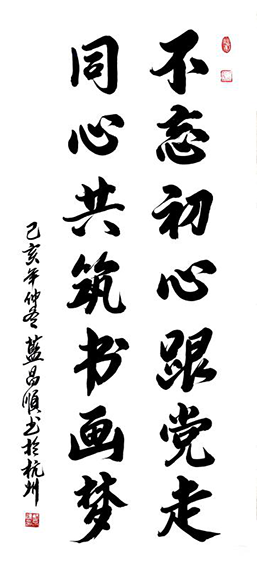 不忘初心跟党走
同心共筑书画梦
己亥年仲冬蓝昌顺书於杭州